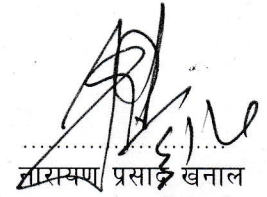 नारायण प्रसाद खनाल